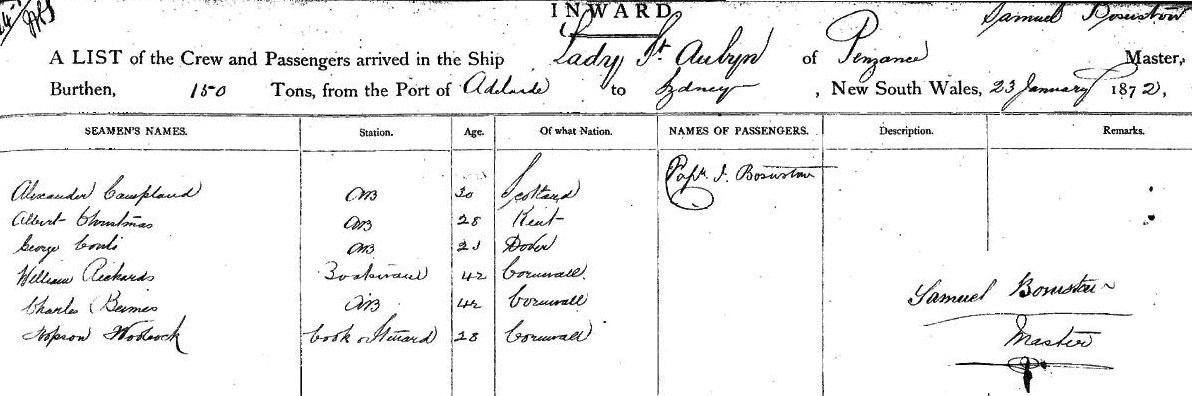 INWARD.
Samuel Bosustow
A LIST of the Crew and Passengers arrived in the Ship Lady St. Aubyn of Penzance Master,
Burthen, 150 Tons, from the Port of Adelaide to Sydney , New South Wales, 23 January 1872,
SEAMEN'S NAMES. Station. Age. Of what Nation. NAMES OF PASSENGERS. Description. Remarks.
J. Bosustow
Alexander AB 20 Scotland
Albert Christmas AB 28 Kent
George AB Dover
William Rickards Boatswain 42 Cornwall
Charles AB 42 Cornwall
Woolcock Cook & Steward 28 Cornwall
Samuel Bosustow
Master